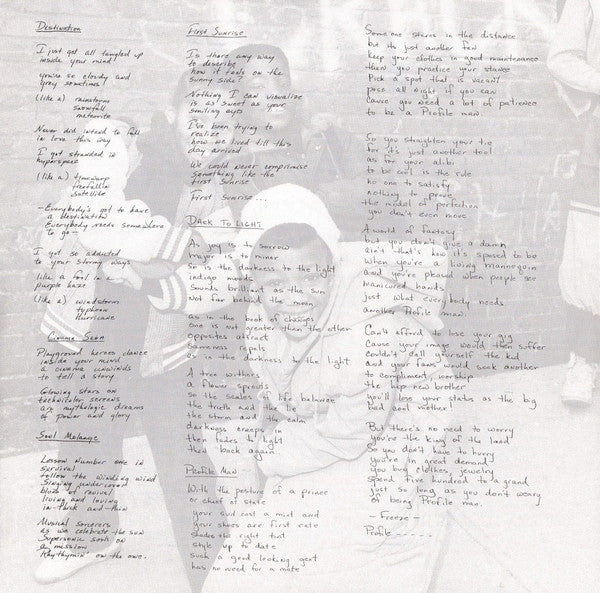 Destination
I just get all tangled up
inside your mind
you're so cloudy and
grey sometimes
(like a) rainstorm
snowfall
meteorite
Never did intend to fall
in love this way
I got stranded in
hyperspace
(like a) timewarp
freefallin
satellite
- Everybody's got to have
a destination
Everybody needs somewhere
to go -
I got so addicted
to your stormy ways
like a fool in a
purple haze
(like a) windstorm
typhoon
hurricane
Cinema Scan
Playground heroes dance
inside your mind
a cinema unwinds
to tell a story
Glowing stars on
technicolor screens
are mythologic dreams
of power and glory
Soul Melange
Lesson number one in
survival
follow the winding wind
Singing undercover
blues of revival
living and loving
in thick and thin
Musical sorcerers
as we celebrate the sun
Supersonic souls on
a mission
Rhythymin' on the one.
First Sunrise
Is there any way
to describe
how it feels on the
sunny side?
Nothing I can visualize
is as sweet as your
smiling eyes
I've been trying to
realize
how we lived till this
day arrived
We could never compromise
something like the
first Sunrise
First Sunrise...
Dark To Light
As joy is to sorrow
major is to minor
so is the darkness to the light
indigo moods
Sounds brilliant as the sun
Not far behind the moon
as in the book of changes
one is not greater than the other
opposites attract
Sameness repels
as in the darkness to the light
A tree withers
a flower sprouts
So the scales of life balance
the truth and the lie
the storm and the calm
darkness creeps in
then fades to light
then back again.
Profile Man
With the posture of a prince
or chief of state
your suit cost a mint and
your shoes are first rate
shades the right tint
style up to date
such a good looking gent
has no need for a mate
Someone stares in the distance
but its just another fan
keep your clothes in good maintenance
then you practice your stance
Pick a spot that is vacant
pose all night if you can
Cause you need a lot of patience
to be a Profile man.
So you straighten your tie
for it's just another tool
as for your alibi
to be cool is the rule
no one to satisfy
nothing to prove
the model of perfection
you don't even move
A world of fantasy
but you don't give a damn
ain't that's how it's sposed to be
When you're a living mannequin
and you're pleased when people see
manicured hands
just what every body needs
another Profile man.
Can't afford to lose your gig
Cause your image would then suffer
Couldn't call yourself the kid
and your fans would seek another
to compliment, worship
the hip new brother
you'll lose your status as the big
bad cool mother!
But there's no need to worry
you're the king of the land
So you don't have to hurry
you're in great demand
you buy clothes, jewelry
spend five hundred to a grand
just so long as you don't weary
of being Profile man.
- Freeze -
Profile - - - - - -